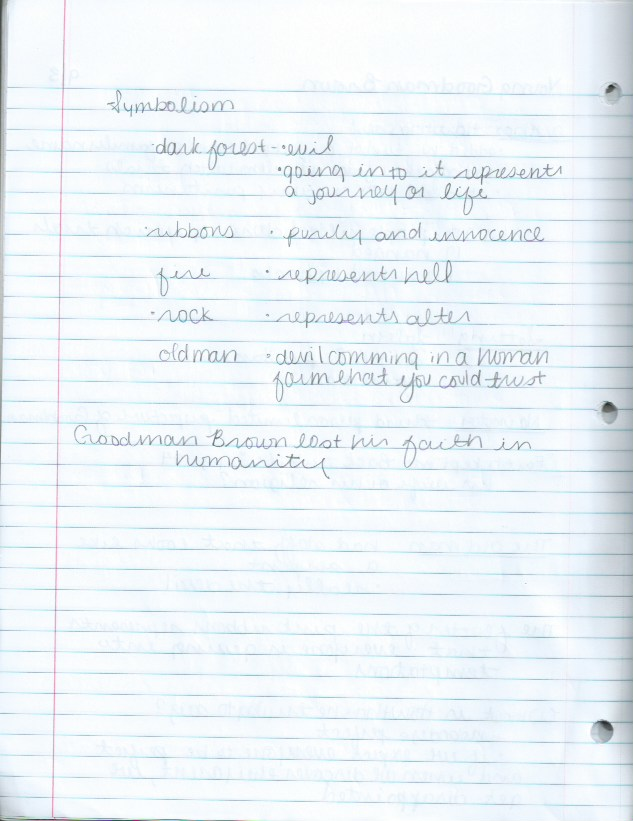 Symbolism
·dark forest - ·evil
·going in to it represents
a journey or life
·ribbons · purity and innocence
fire · represents hell
·rock · represents alter
old man · devil comming in a human
form that you could trust
Goodman Brown lost his faith in
humanity